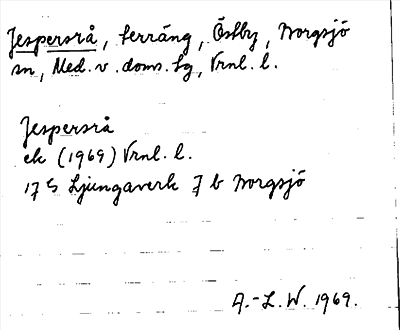 Jespersrå, terräng, Östby, Borgsjö
sn, Med. v. doms. lg, Vrnl. l.
Jespersrå
ek (1969) Vrnl. l.
17 G Ljungaverk 7 b Borgsjö
A.-L. W. 1969.